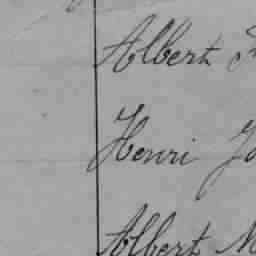 Albert
Henri
Albert